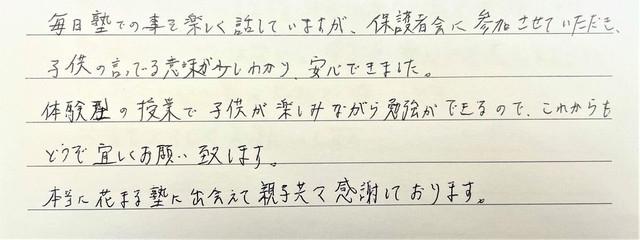 毎日塾での事を楽しく話していますが、保護者会に参加させていただき、
子供の言ってる意味が少しわかり、安心できました。
体験型の授業で子供が楽しみながら勉強ができるので、これからも
どうぞ宜しくお願い致します。
本当に花まる塾に出会えて親子共々感謝しております。